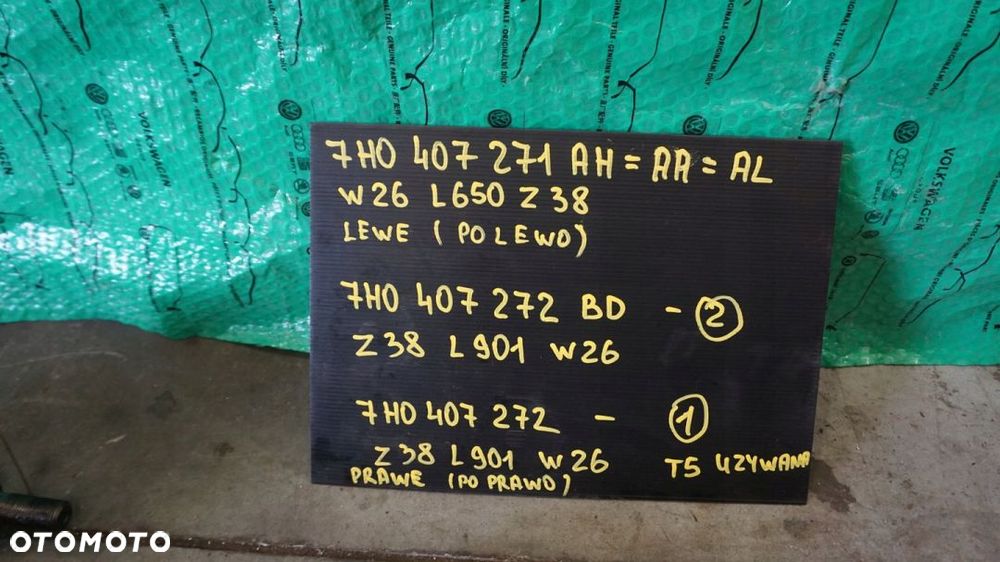 7H0 407 271 AH = AA = AL
W26 L650 Z38
LEWE (PO LEWO)
7H0 407 272 BD - 2
Z38 L901 W26
7H0 407 272 - 1
Z38 L901 W26 T5 UZYWANA
PRAWE (PO PRAWO)
VOLKSWAGEN
VOLKSWAGEN
OTOMOTO